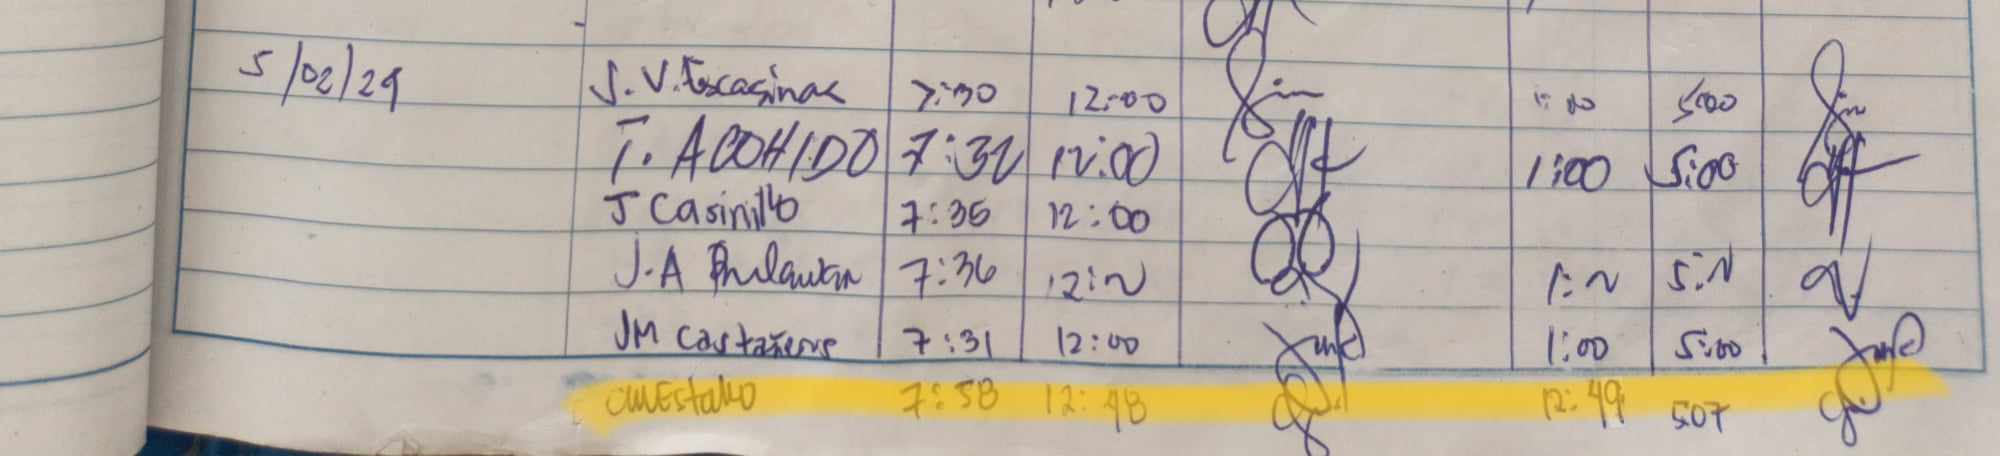 5/02/29 J.V. Escasinas 7:30 12:00 1:00 5:00
T. ACOHIDO 7:32 12:00 1:00 5:00
J Casinillo 7:35 12:00
J.A 7:36 12:N 1:N 5:N
JM Castañeros 7:31 12:00 1:00 5:00
7:58 12:48 12:49 507